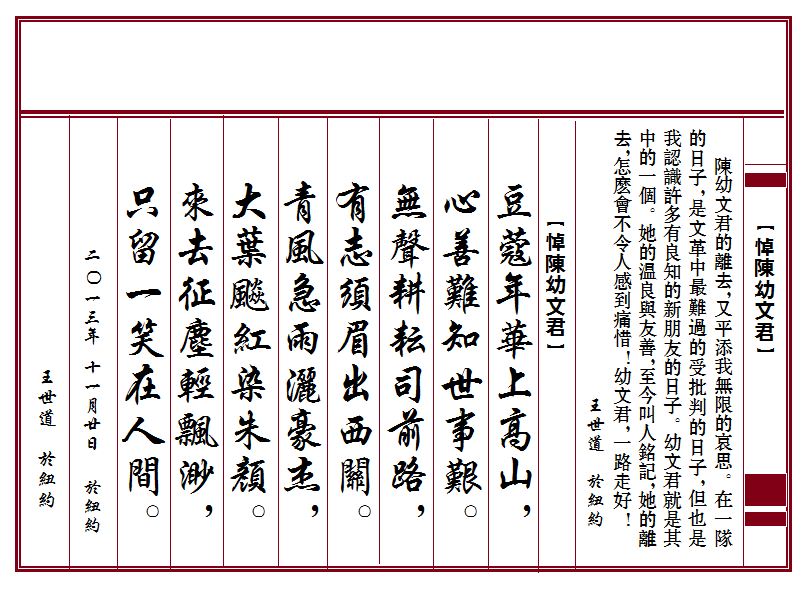 【悼陳幼文君】
陳幼文君的離去,又平添我無限的哀思。在一隊
的日子,是文革中最難過的受批判的日子,但也是
我認識許多有良知的新朋友的日子。幼文君就是其
中的一個。她的溫良與友善,至今叫人銘記,她的離
去,怎麽會不令人感到痛惜!幼文君,一路走好!
王世道 於紐約
【悼陳幼文君】
豆蔻年華上高山,
心善難知世事艱。
無聲耕耘司前路,
有志須眉出西關。
青風急雨灑豪杰,
大葉飈紅染朱顏。
來去征塵輕飄渺,
只留一笑在人間。
二〇一三年 十一月廿日 於紐約
王世道 於紐約